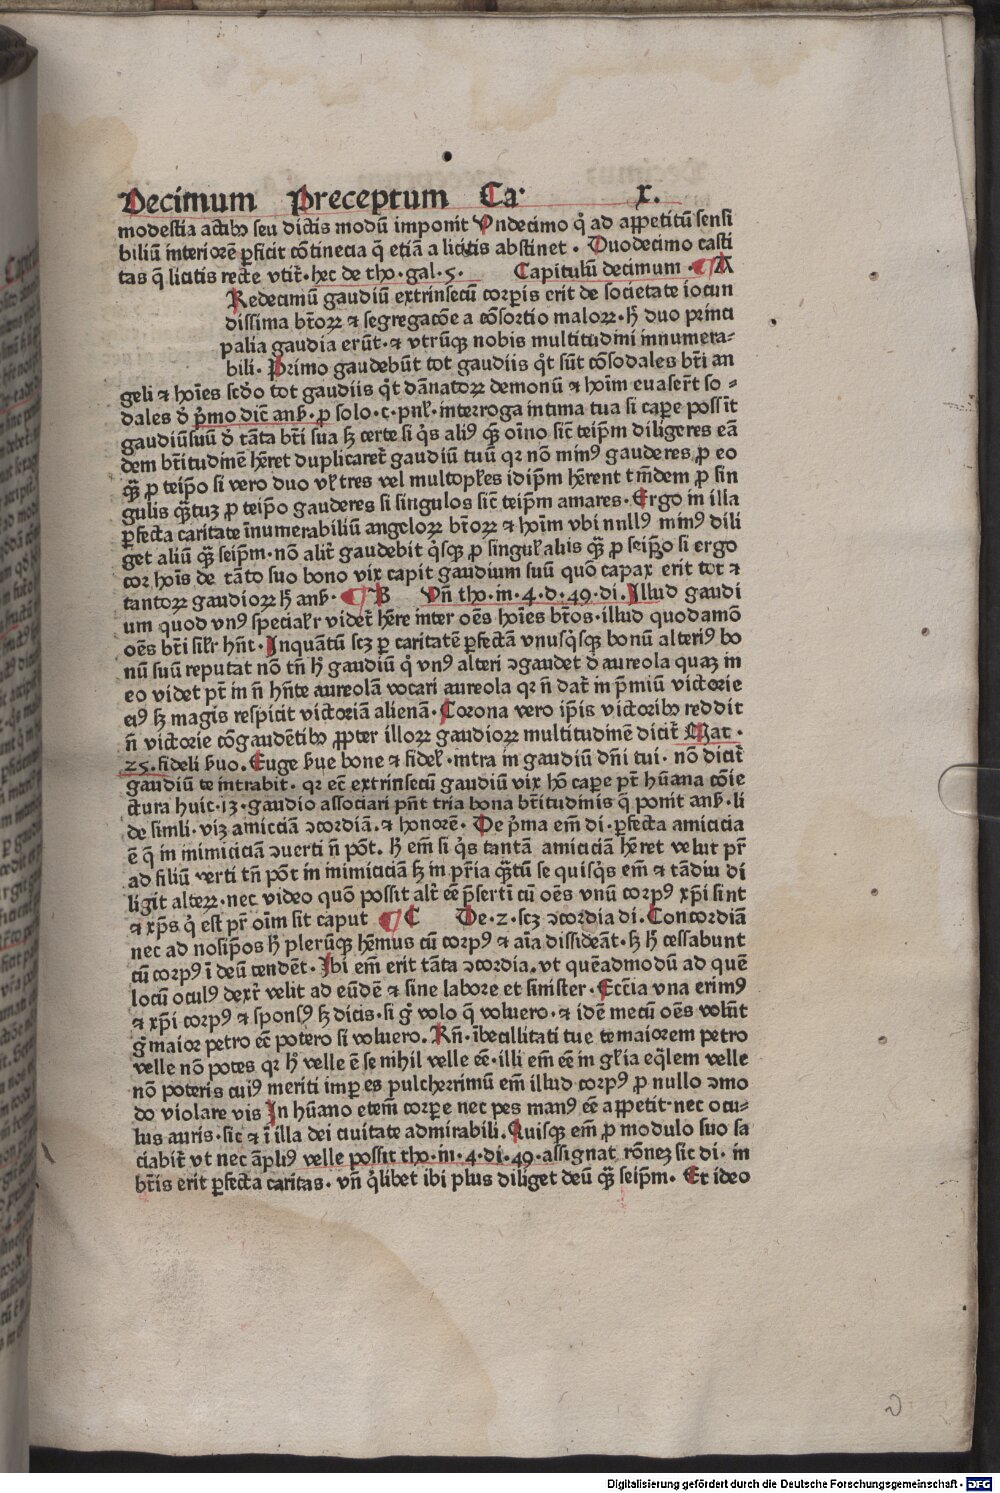 Decimum Preceptum Ca. x.
modestia actibꝰ seu dictis modū imponit Vndecimo q̇ ad appetitū sensi
biliū interiorē ꝑficit cōtinecia q̄ etiā a licitis abstinet. Duodecimo casti
tas q̄ licitis recte vtit᷑. hec de tho. gal. 5. Capitulū decimum. ¶ A
Redecimū gaudiū extrinsecū corꝑis erit de societate iocun
dissima bt̄oꝝ ⁊ segregacōe a cōsortio maloꝝ. h̄ duo princi
palia gaudia erūt. ⁊ vtrūqꝫ nobis multitudini innumera-
bili. Primo gaudebūt tot gaudiis q̇t sūt cōsodales bt̄i an
geli ⁊ hoīes scd̄o tot gaudiis q̇t dānatoꝝ demonū ⁊ hoīm euaser̄t so-
dales d̄ p̄mo dic̄t anß. ꝓ solo. c. pnł. interroga intima tua si caꝑe possīt
gaudiū suū d̄ tāta bt̄i sua ꝫ certe si q̇s aliꝰ qꝫ̄ oīno sic̄t teip̄m diligeres eā
dem bt̄itudinē hēret duplicaret᷑ gaudiū tuū qꝛ nō minꝰ gauderes ꝓ eo
qꝫ̄ ꝓ teip̄o si vero duo vł tres vel multoplēs idip̄m hērent tm̄dem ꝓ sin
gulis qꝫ̄tuꝫ ꝓ teip̄o gauderes si singulos sic̄t teip̄m amares. Ergo in illa
ꝑfecta caritate īnumerabiliū angeloꝝ bt̄oꝝ ⁊ hoīm vbi nullꝰ minꝰ dili
get aliū qꝫ̄ seip̄m. nō alit᷑ gaudebit q̇sqꝫ ꝓ singuł aliis qꝫ̄ ꝓ seip̄o si ergo
cor hoīs de tāto suo bono vix capit gaudium suū quō capax erit tot ⁊
tantoꝝ gaudioꝝ h̄ anß. ¶ B Vn̄ tho. in. 4. d. 49. di. Illud gaudi
um quod vnꝰ specialr̄ videt᷑ hēre inter oēs hoīes bt̄os. illud quodamō
oēs bt̄i silr̄ hn̄t. Inquātū scꝫ ꝑ caritatē ꝑfectā vnusq̇sqꝫ bonū alteriꝰ bo
nū suū reputat nō tn̄ h̄ gaudiū q̇ vnꝰ alteri ↄgaudet d̄ aureola quaꝫ in
eo videt pt̄ in n̄ hn̄te aureolā vocari aureola qꝛ n̄ dat᷑ in p̄miū victorie
eiꝰ ꝫ magis respicit victoriā alienā. Corona vero ip̄is victoribꝰ reddit᷑
n̄ victorie cōgaudētibꝰ ꝓpter illoꝝ gaudioꝝ multitudinē dicit᷑ Mat.
25. fideli ßuo. Euge ßue bone ⁊ fideł. intra in gaudiū dn̄i tui. nō dicit᷑
gaudiū te intrabit. qꝛ ec̄t extrinsecū gaudiū vix hō caꝑe pt̄ hūana cōie
ctura huic. 13. gaudio associari pn̄t tria bona bt̄itudinis q̄ ponit anß. li
de simli. viꝫ amiciciā ↄcordiā. ⁊ honorē. De p̄ma em̄ di. ꝑfecta amicicia
ē q̄ in inimiciciā ↄuerti n̄ pōt. h̄ em̄ si q̇s tantā amiciciā hēret velut pr̄
ad filiū verti tn̄ pōt in inimiciciā ꝫ in pr̄ia qꝫ̄tū se quisq̇s em̄ ⁊ tādiu di
ligit alteꝝ. nec video quō possit alt᷑ eē p̄sertī cū oēs vnū corpꝰ xp̄i sint
⁊ xp̄s q̇ est pr̄ oīm sit caput ¶ C De. 2. scꝫ ↄcordia di. Concordiā
nec ad nosip̄os h̄ plerūqꝫ hēmus cū corpꝰ ⁊ aīa dissideāt. ꝫ h̄ cessabunt
cū corpꝰ ī deū tendēt. Ibi em̄ erit tāta ↄcordia. vt quēadmodū ad quē
locū oculꝰ dext᷑ velit ad eūdē ⁊ sine labore et sinister. Ecc̄ia vna erimꝰ
⁊ xp̄i corpꝰ ⁊ sponsꝰ ꝫ dicis. si ġ volo q̄ voluero. ⁊ idē mecū oēs volūt
ġ maior petro eē potero si voluero. Rn̄. ībecallitati tue te maiorem petro
velle nō potes qꝛ h̄ velle ē se nihil velle eē. illi em̄ eē in gl̄ia eq̄lem velle
nō poteris cuiꝰ meriti imꝑ es pulcherrimū em̄ illud corpꝰ ꝓ nullo ↄmo
do violare vis In hūano etem̄ corꝑe nec pes manꝰ eē appetit. nec ocu-
lus auris. sic ⁊ ī illa dei ciuitate admirabili. Quisqꝫ em̄ ꝓ modulo suo sa
ciabit᷑ vt nec āpliꝰ velle possit tho. in. 4. di. 49. assignat rōneꝫ sic di. in
bt̄is erit ꝑfecta caritas. vn̄ q̇libet ibi plus diliget deū qꝫ̄ seip̄m. Et ideo
Digitalisierung gefördert durch die Deutsche Forschungsgemeinschaft - DFG